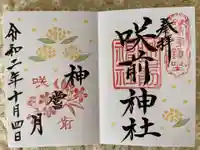 奉拝
咲前神社
神嘗月
令和二年十月四日